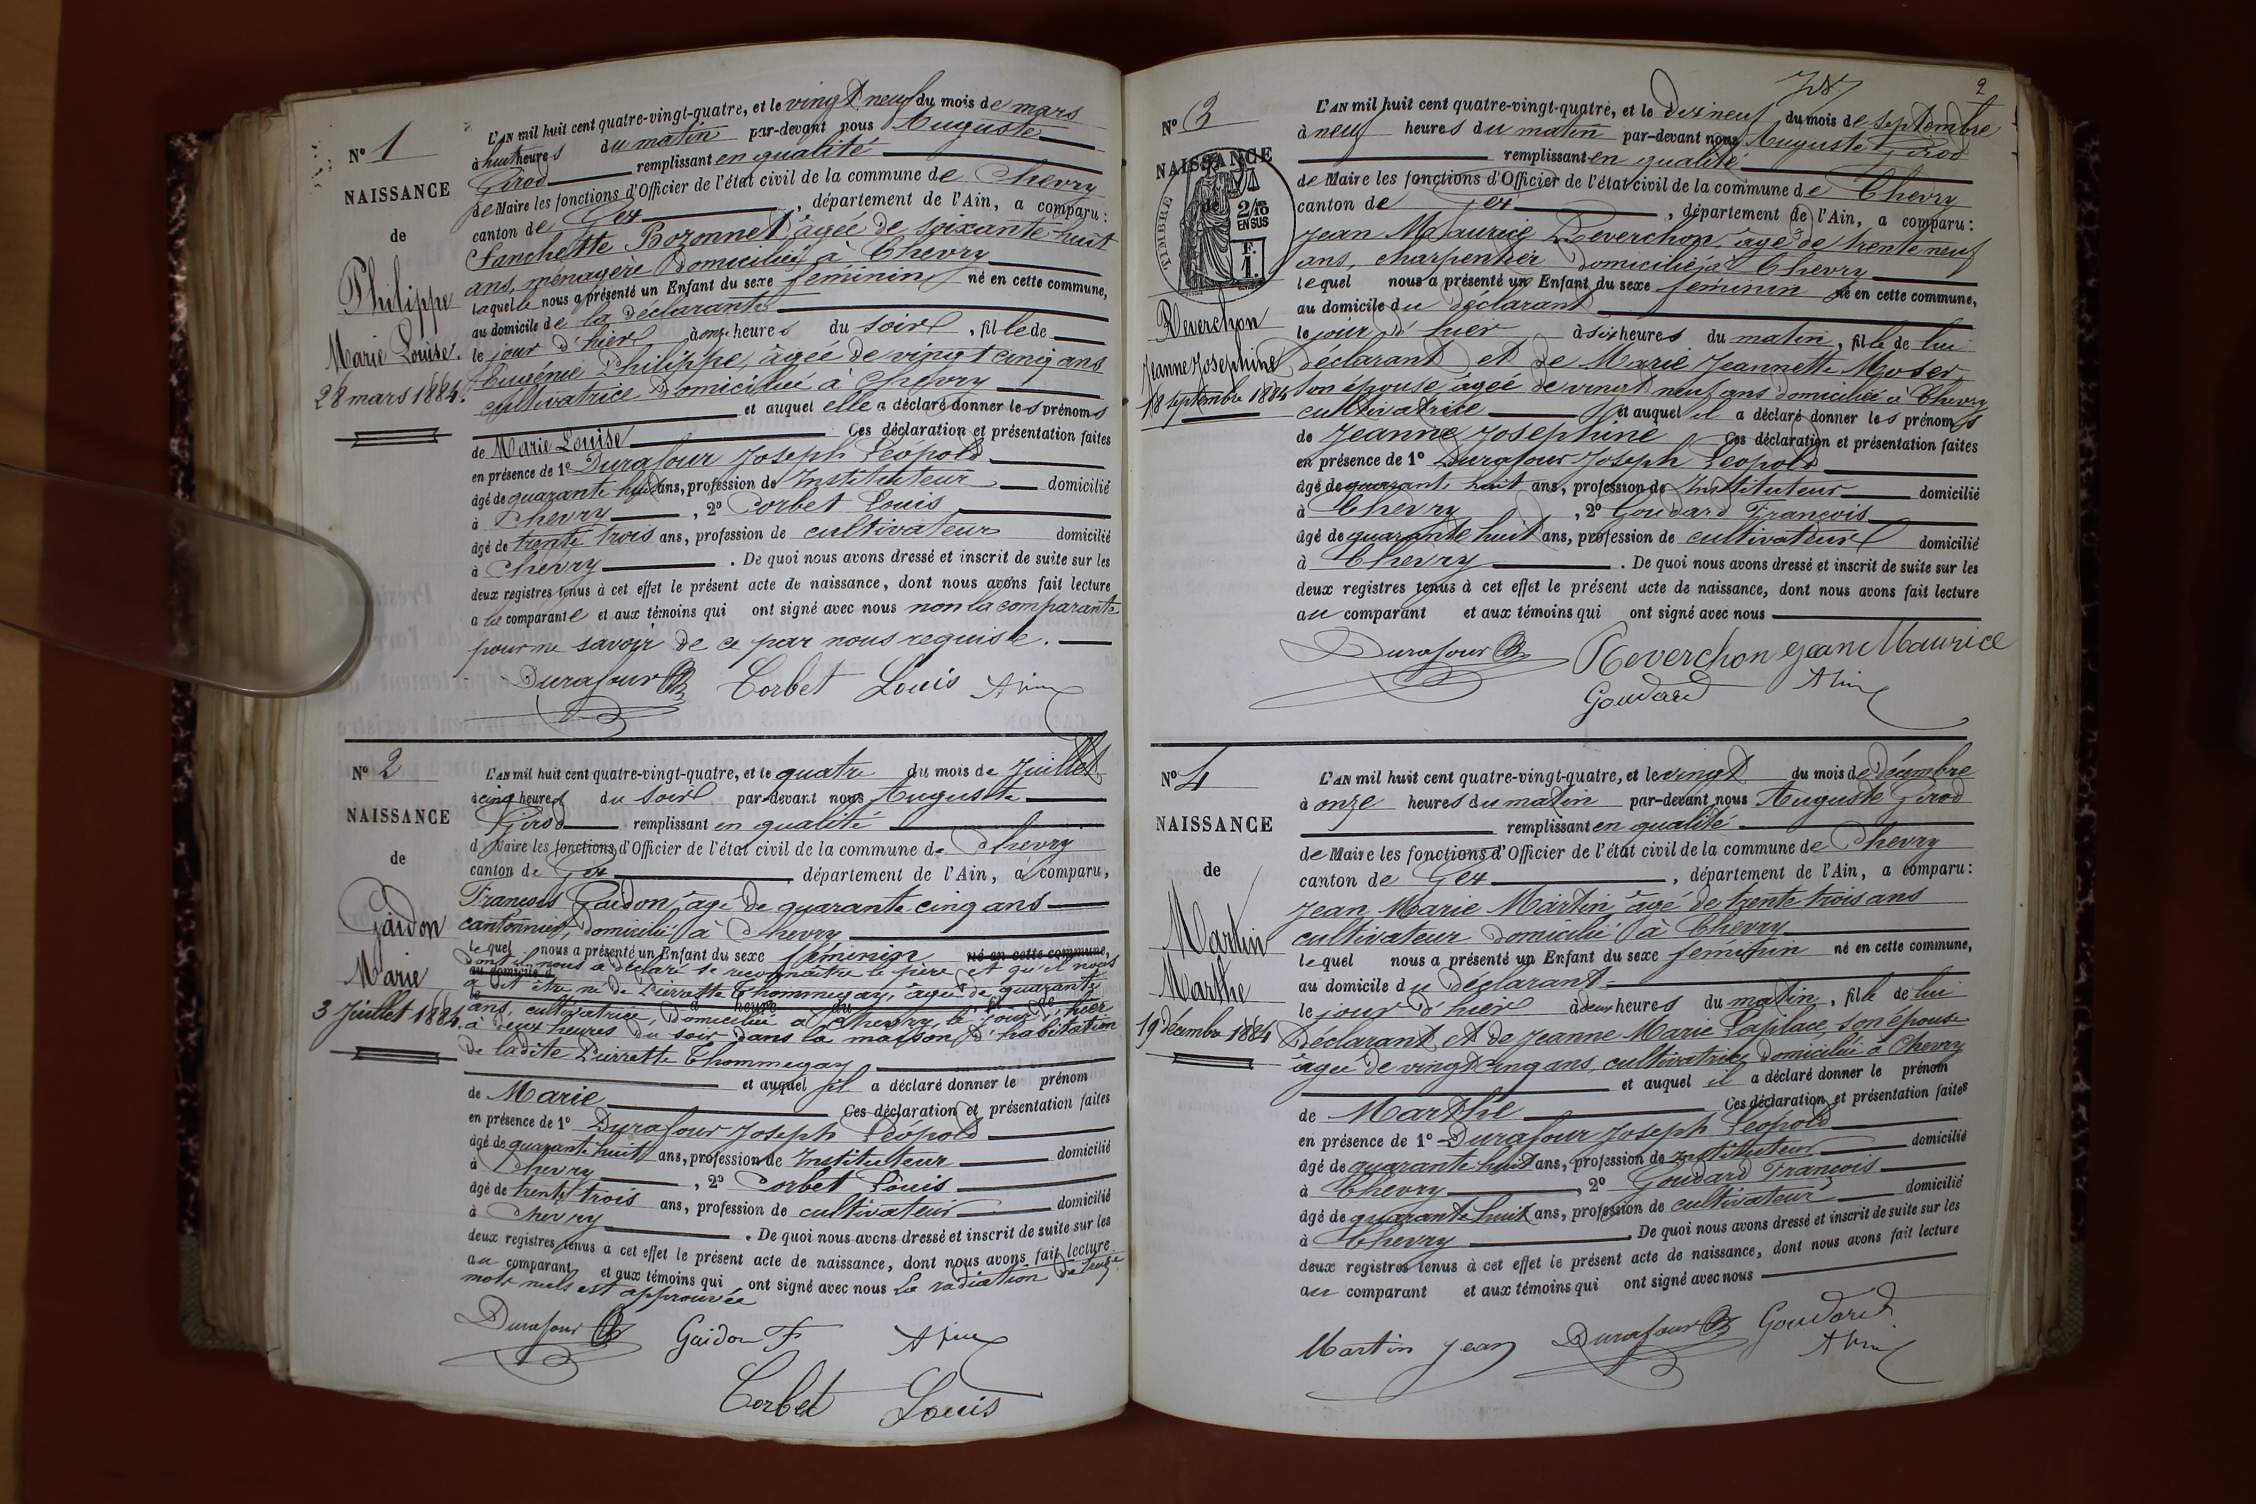 N° 1
NAISSANCE
de
Philippe
Marie Louise.
28 mars 1884.
L'AN mil huit cent quatre-vingt-quatre, et le vingt neuf du mois de mars
à huit heures du matin par-devant nous Auguste
Girod remplissant en qualité
de Maire les fonctions d'Officier de l'état civil de la commune de Chevry
canton de Gex, département de l'Ain, a comparu :
Fanchette Bozonnet, âgée de soixante-huit
ans, ménagère domiciliée à Chevry
laquelle nous a présenté un Enfant du sexe féminin né en cette commune,
au domicile de la déclarante
le jour d'hier à onze heures du soir, fille de
Eugénie Philippe, âgée de vingt cinq ans
cultivatrice domiciliée à Chevry
et auquel elle a déclaré donner les prénoms
de Marie Louise Ces déclaration et présentation faites
en présence de 1° Durafour Joseph Léopold
âgé de quarante huit ans, profession de Instituteur domicilié
à Chevry, 2° Corbet Louis
âgé de trente trois ans, profession de cultivateur domicilié
à Chevry. De quoi nous avons dressé et inscrit de suite sur les
deux registres tenus à cet effet le présent acte de naissance, dont nous avons fait lecture
a la comparante et aux témoins qui ont signé avec nous non la comparante
pour ne savoir de ce par nous requise.
Durafour Corbet Louis
N° 2
NAISSANCE
de
Gaidon
Marie
3 Juillet 1884.
L'AN mil huit cent quatre-vingt-quatre, et le quatre du mois de Juillet
à cinq heures du soir par-devant nous Auguste
Girod remplissant en qualité
de Maire les fonctions d'Officier de l'état civil de la commune de Chevry
canton de Gex département de l'Ain, a comparu,
François Gaidon, âgé de quarante-cinq ans
cantonnier, domicilié à Chevry
lequel nous a présenté un Enfant du sexe féminin né en cette commune,
dont il nous a déclaré se reconnaître le père et qu'il nous
au domicile d
a dit être né de Pierrette Thommegay, âgée de quarante
le à heure du fil de
ans, cultivatrice, domiciliée à Chevry, le jour d'hier
à deux heures du soir dans la maison d'habitation
de ladite Pierrette Thommegay
et auquel il a déclaré donner le prénom
de Marie Ces déclaration et présentation faites
en présence de 1° Durafour Joseph Léopold
âgé de quarante huit ans, profession de Instituteur domicilié
à Chevry, 2° Corbet Louis
âgé de trente trois ans, profession de cultivateur domicilié
à Chevry. De quoi nous avons dressé et inscrit de suite sur les
deux registres tenus à cet effet le présent acte de naissance, dont nous avons fait lecture
au comparant et aux témoins qui ont signé avec nous La radiation de
mots nuls est approuvée
Durafour Gaidon F
Corbet Louis
2
N° 3
NAISSANCE
de
TIMBRE
2/10
EN SUS
F.
1.
Reverchon
Jeanne Josephine
18 septembre 1884
L'AN mil huit cent quatre-vingt-quatre, et le dix neuf du mois de septembre
à neuf heures du matin par-devant nous Auguste Girod
remplissant en qualité
de Maire les fonctions d'Officier de l'état civil de la commune de Chevry
canton de Gex, département de l'Ain, a comparu :
Jean Maurice Reverchon, âgé de trente neuf
ans, charpentier domicilié à Chevry
lequel nous a présenté un Enfant du sexe féminin né en cette commune,
au domicile du déclarant
le jour d'hier à six heures du matin, fille de lui
déclarant et de Marie Jeannette Moser
son épouse âgée de vingt neuf ans domiciliée à Chevry
cultivatrice et auquel il a déclaré donner les prénoms
de Jeanne Josephine Ces déclaration et présentation faites
en présence de 1° Durafour Joseph Léopold
âgé de quarante huit ans, profession de Instituteur domicilié
à Chevry, 2° Goudard François
âgé de quarante huit ans, profession de cultivateur domicilié
à Chevry. De quoi nous avons dressé et inscrit de suite sur les
deux registres tenus à cet effet le présent acte de naissance, dont nous avons fait lecture
au comparant et aux témoins qui ont signé avec nous
Durafour Reverchon Jean Maurice
Goudard
N° 4
NAISSANCE
de
Martin
Marthe
19 décembre 1884
L'AN mil huit cent quatre-vingt-quatre, et le vingt du mois de décembre
à onze heures du matin par-devant nous Auguste Girod
remplissant en qualité
de Maire les fonctions d'Officier de l'état civil de la commune de Chevry
canton de Gex, département de l'Ain, a comparu :
Jean Marie Martin âgé de trente trois ans
cultivateur domicilié à Chevry
lequel nous a présenté un Enfant du sexe féminin né en cette commune,
au domicile du déclarant
le jour d'hier à deux heures du matin, fille de lui
déclarant et de Jeanne-Marie Laplace, son épouse
âgée de vingt cinq ans, cultivatrice domiciliée à Chevry
et auquel il a déclaré donner le prénom
de Marthe Ces déclaration et présentation faites
en présence de 1° Durafour Joseph Léopold
âgé de quarante huit ans, profession de Instituteur domicilié
à Chevry, 2° Goudard François
âgé de quarante huit ans, profession de cultivateur domicilié
à Chevry. De quoi nous avons dressé et inscrit de suite sur les
deux registres tenus à cet effet le présent acte de naissance, dont nous avons fait lecture
au comparant et aux témoins qui ont signé avec nous
Martin Jean Durafour Goudard